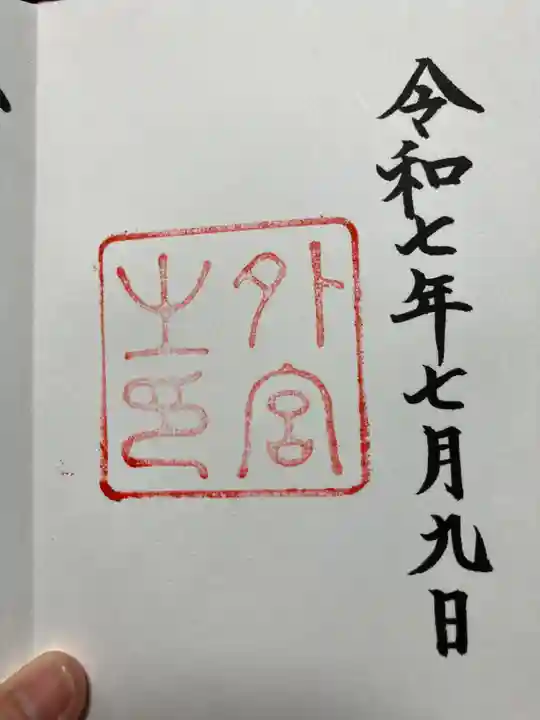 令和七年七月九日
外宮
之印